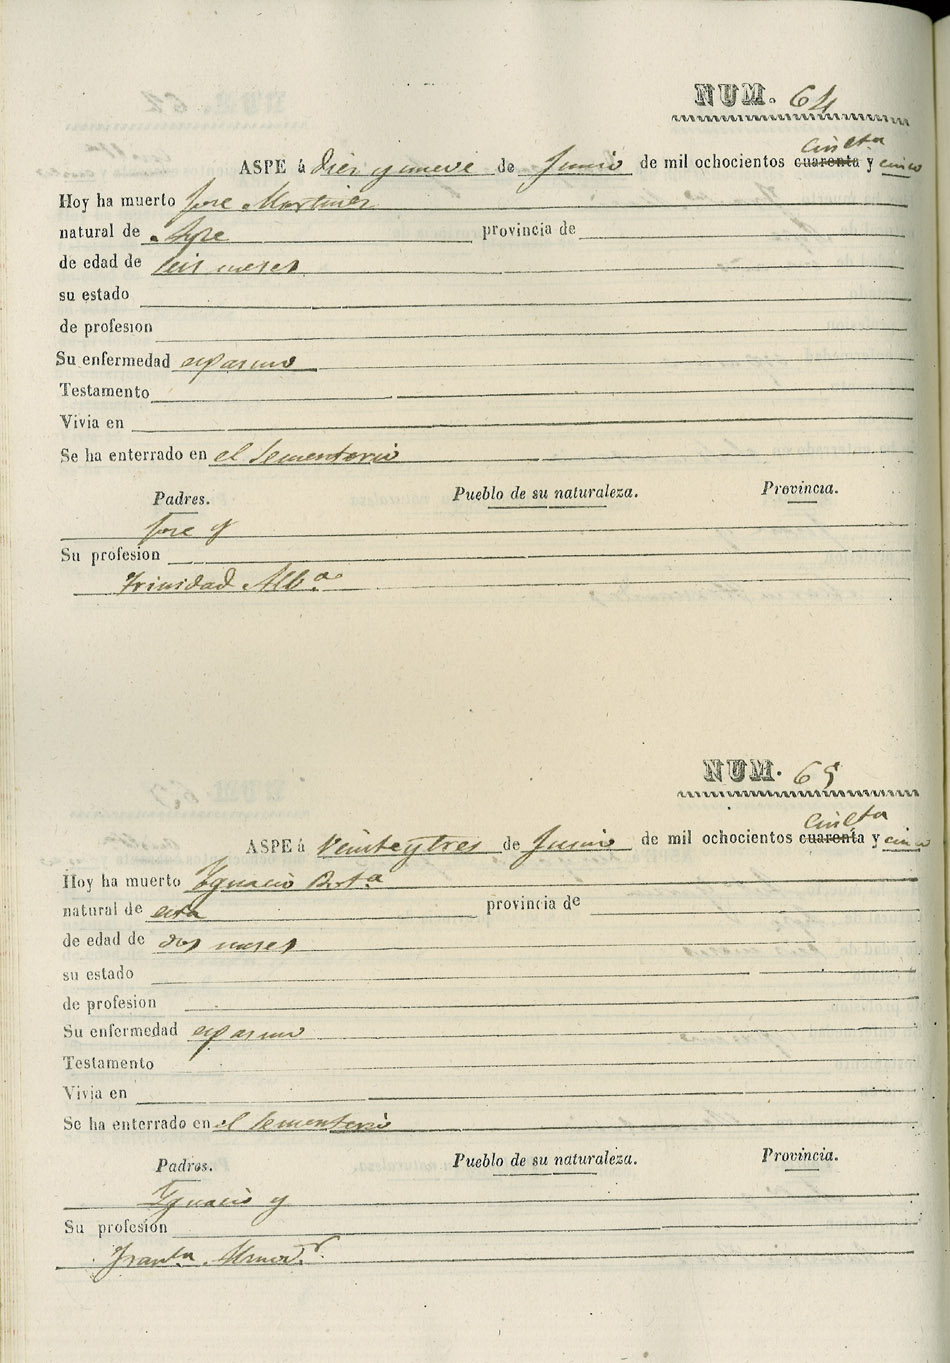 NUM. 64
cincta
ASPE á diez y nueve de Junio de mil ochocientos cuarenta y cinco
Hoy ha muerto Jose Martinez
natural de Aspe provincia de
de edad de seis meses
su estado
de profesion
Su enfermedad espasmo
Testamento
Vivia en
Se ha enterrado en el Sementerio
Padres. Pueblo de su naturaleza. Provincia.
Jose y
Su profesion
Trinidad Alb.ª
NUM. 65
cincta
ASPE á Veinte y tres de Junio de mil ochocientos cuarenta y cinco
Hoy ha muerto Ygnacio
natural de esta provincia de
de edad de dos meses
su estado
de profesion
Su enfermedad espasmo
Testamento
Vivia en
Se ha enterrado en el Sementerio
Padres. Pueblo de su naturaleza. Provincia.
Ygnacio y
Su profesion